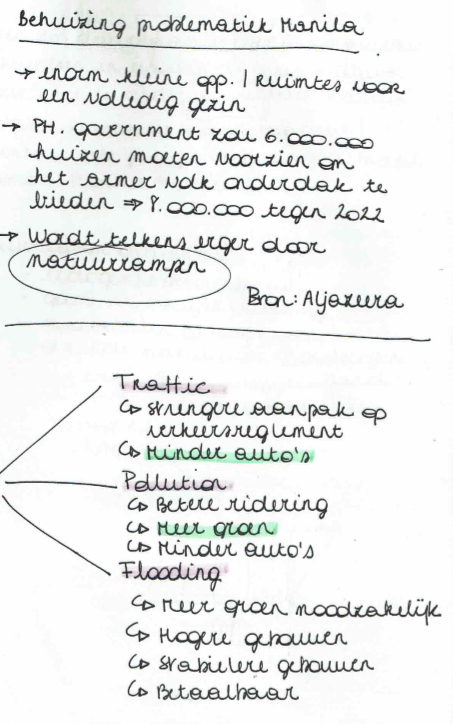 Behuizing problematiek Manila
→ enorm kleine opp. / Ruimtes voor
een volledig gezin
→ PH. government zou 6.000.000
huizen moeten voorzien om
het armer volk onderdak te
bieden ⇒ 8.000.000 tegen 2022
→ Wordt telkens erger door
natuurrampen
Bron: Aljazeera
Traffic
↳ strengere aanpak op
verkeersreglement
↳ Minder auto's
Pollution
↳ Betere riolering
↳ Meer groen
↳ Minder auto's
Flooding
↳ Meer groen noodzakelijk
↳ Hogere gebouwen
↳ Stabielere gebouwen
↳ Betaalbaar